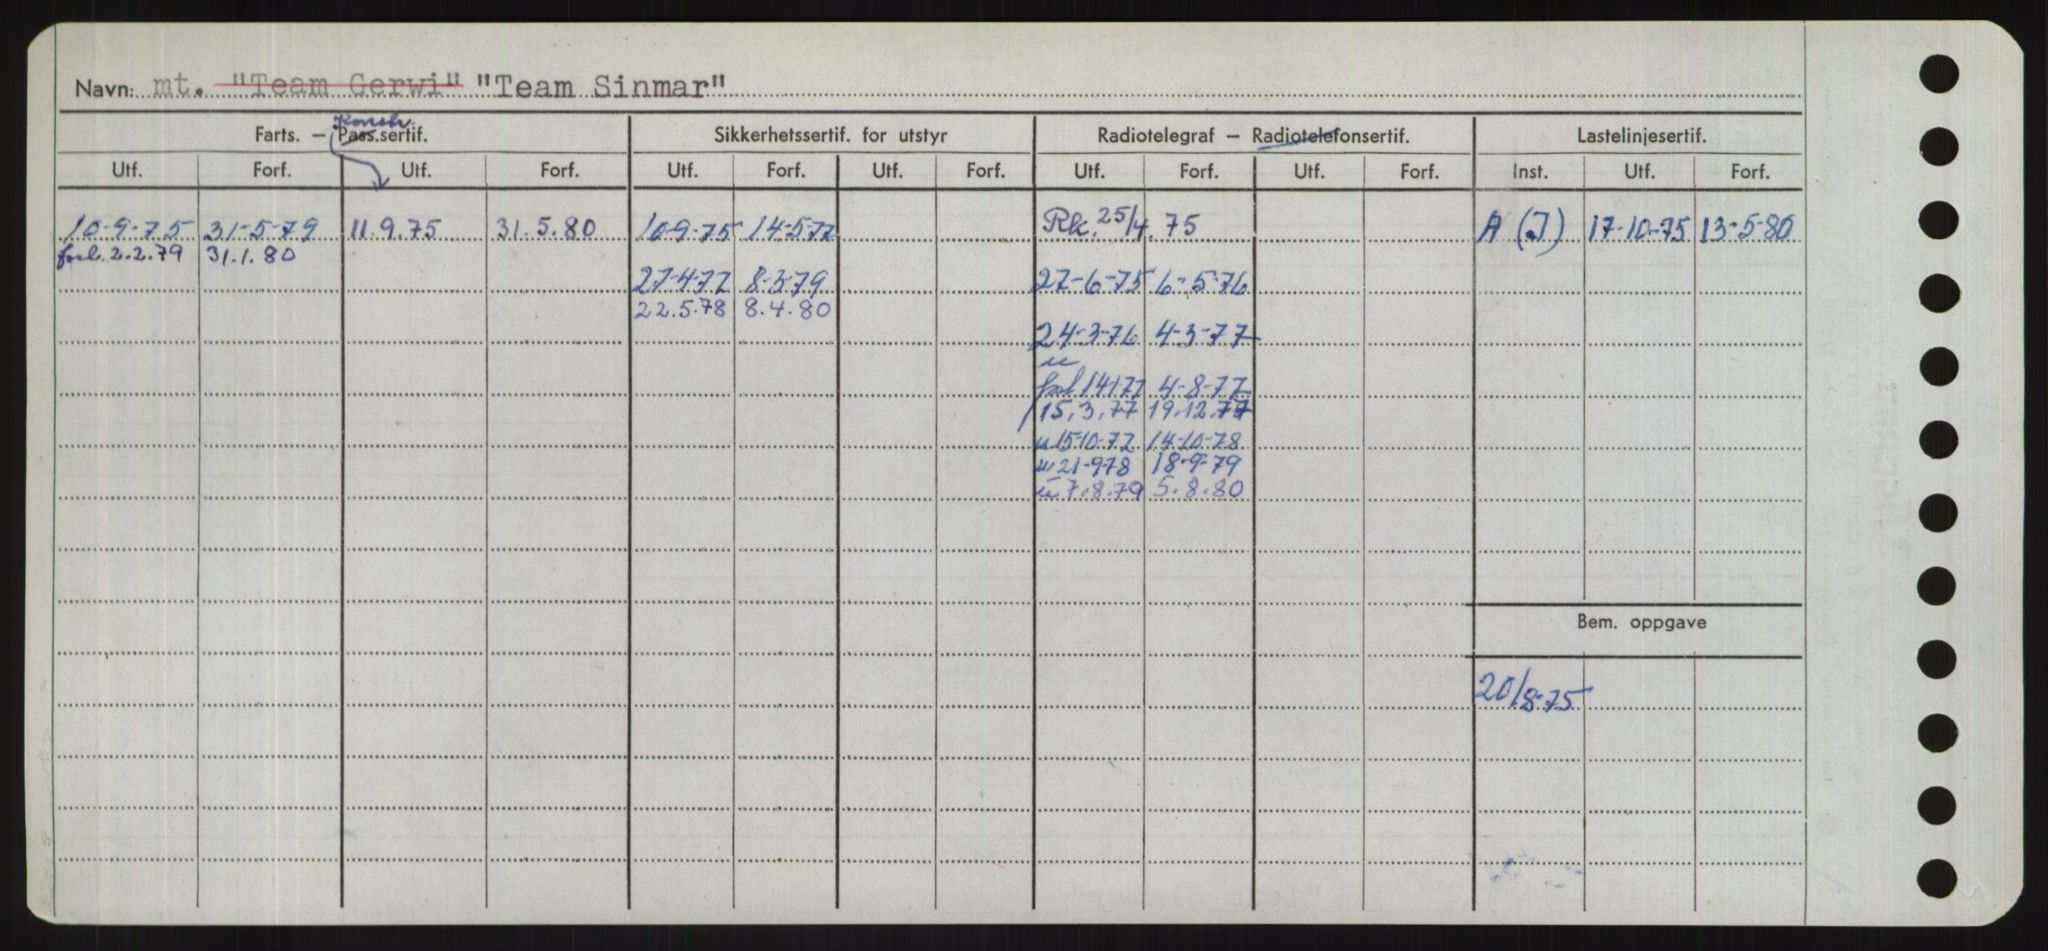 Navn: mt. "Team Gerwi" "Team Sinmar"
Konstr.
Farts. — Pass.sertif. Sikkerhetssertif. for utstyr Radiotelegraf — Radiotelefonsertif. Lastelinjesertif.
Utf. Forf. Utf. Forf. Utf. Forf. Utf. Forf. Utf. Forf. Utf. Forf. Inst. Utf. Forf.
10-9-75 31-5-79 11.9.75 31.5.80 10-9-75 14-5-77 Rk. 25/4.75 A (I) 17-10-75 13-5-80
forl. 2.2.79 31.1.80
27-4-77 8-3-79 27-6-75 6-5-76
22.5.78 8.4.80
24-3-76 4-3-77
u
forl. 14/1 77 4-8-77
15.3.77 19.12.77
u 15-10-77 14-10-78
u 21-9-78 18-9-79
u 7.8.79 5.8.80
Bem. oppgave
20/8-75